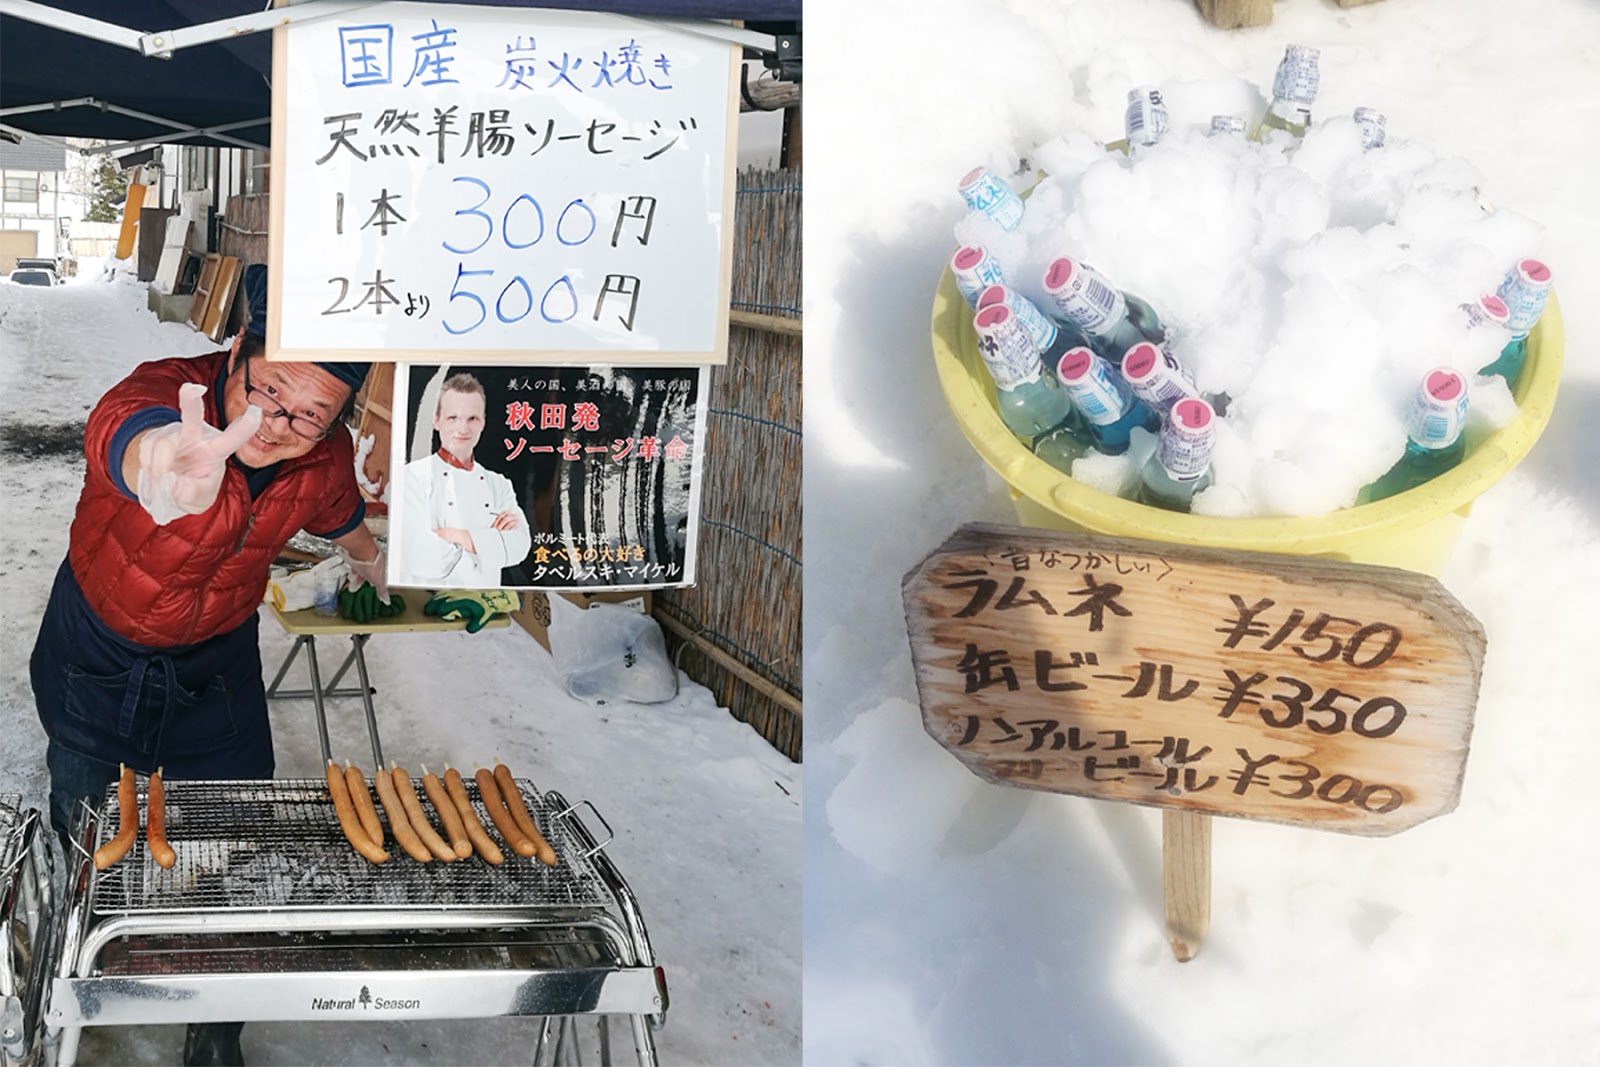 国産 炭火焼き
天然羊腸ソーセージ
1本 300円
2本より 500円
美人の国、美酒の国、美豚の国
秋田発
ソーセージ革命
ポルミート代表
食べるの大好き
タベルスキ・マイケル
Natural Season
ラムネ
〈昔なつかしい〉
ラムネ ¥150
缶ビール ¥350
ノンアルコール
ビール ¥300